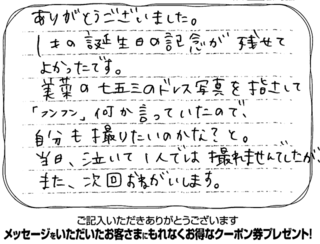 ありがとうございました。
1才の誕生日の記念が残せて
よかったです。
美葉の七五三のドレス写真を指さして
「フンフン」何か言っていたので、
自分も撮りたいのかな?と。
当日、泣いて1人では撮れませんでしたが、
また、次回おねがいします。
ご記入いただきありがとうございます
メッセージをいただいたお客さまにもれなくお得なクーポン券プレゼント!